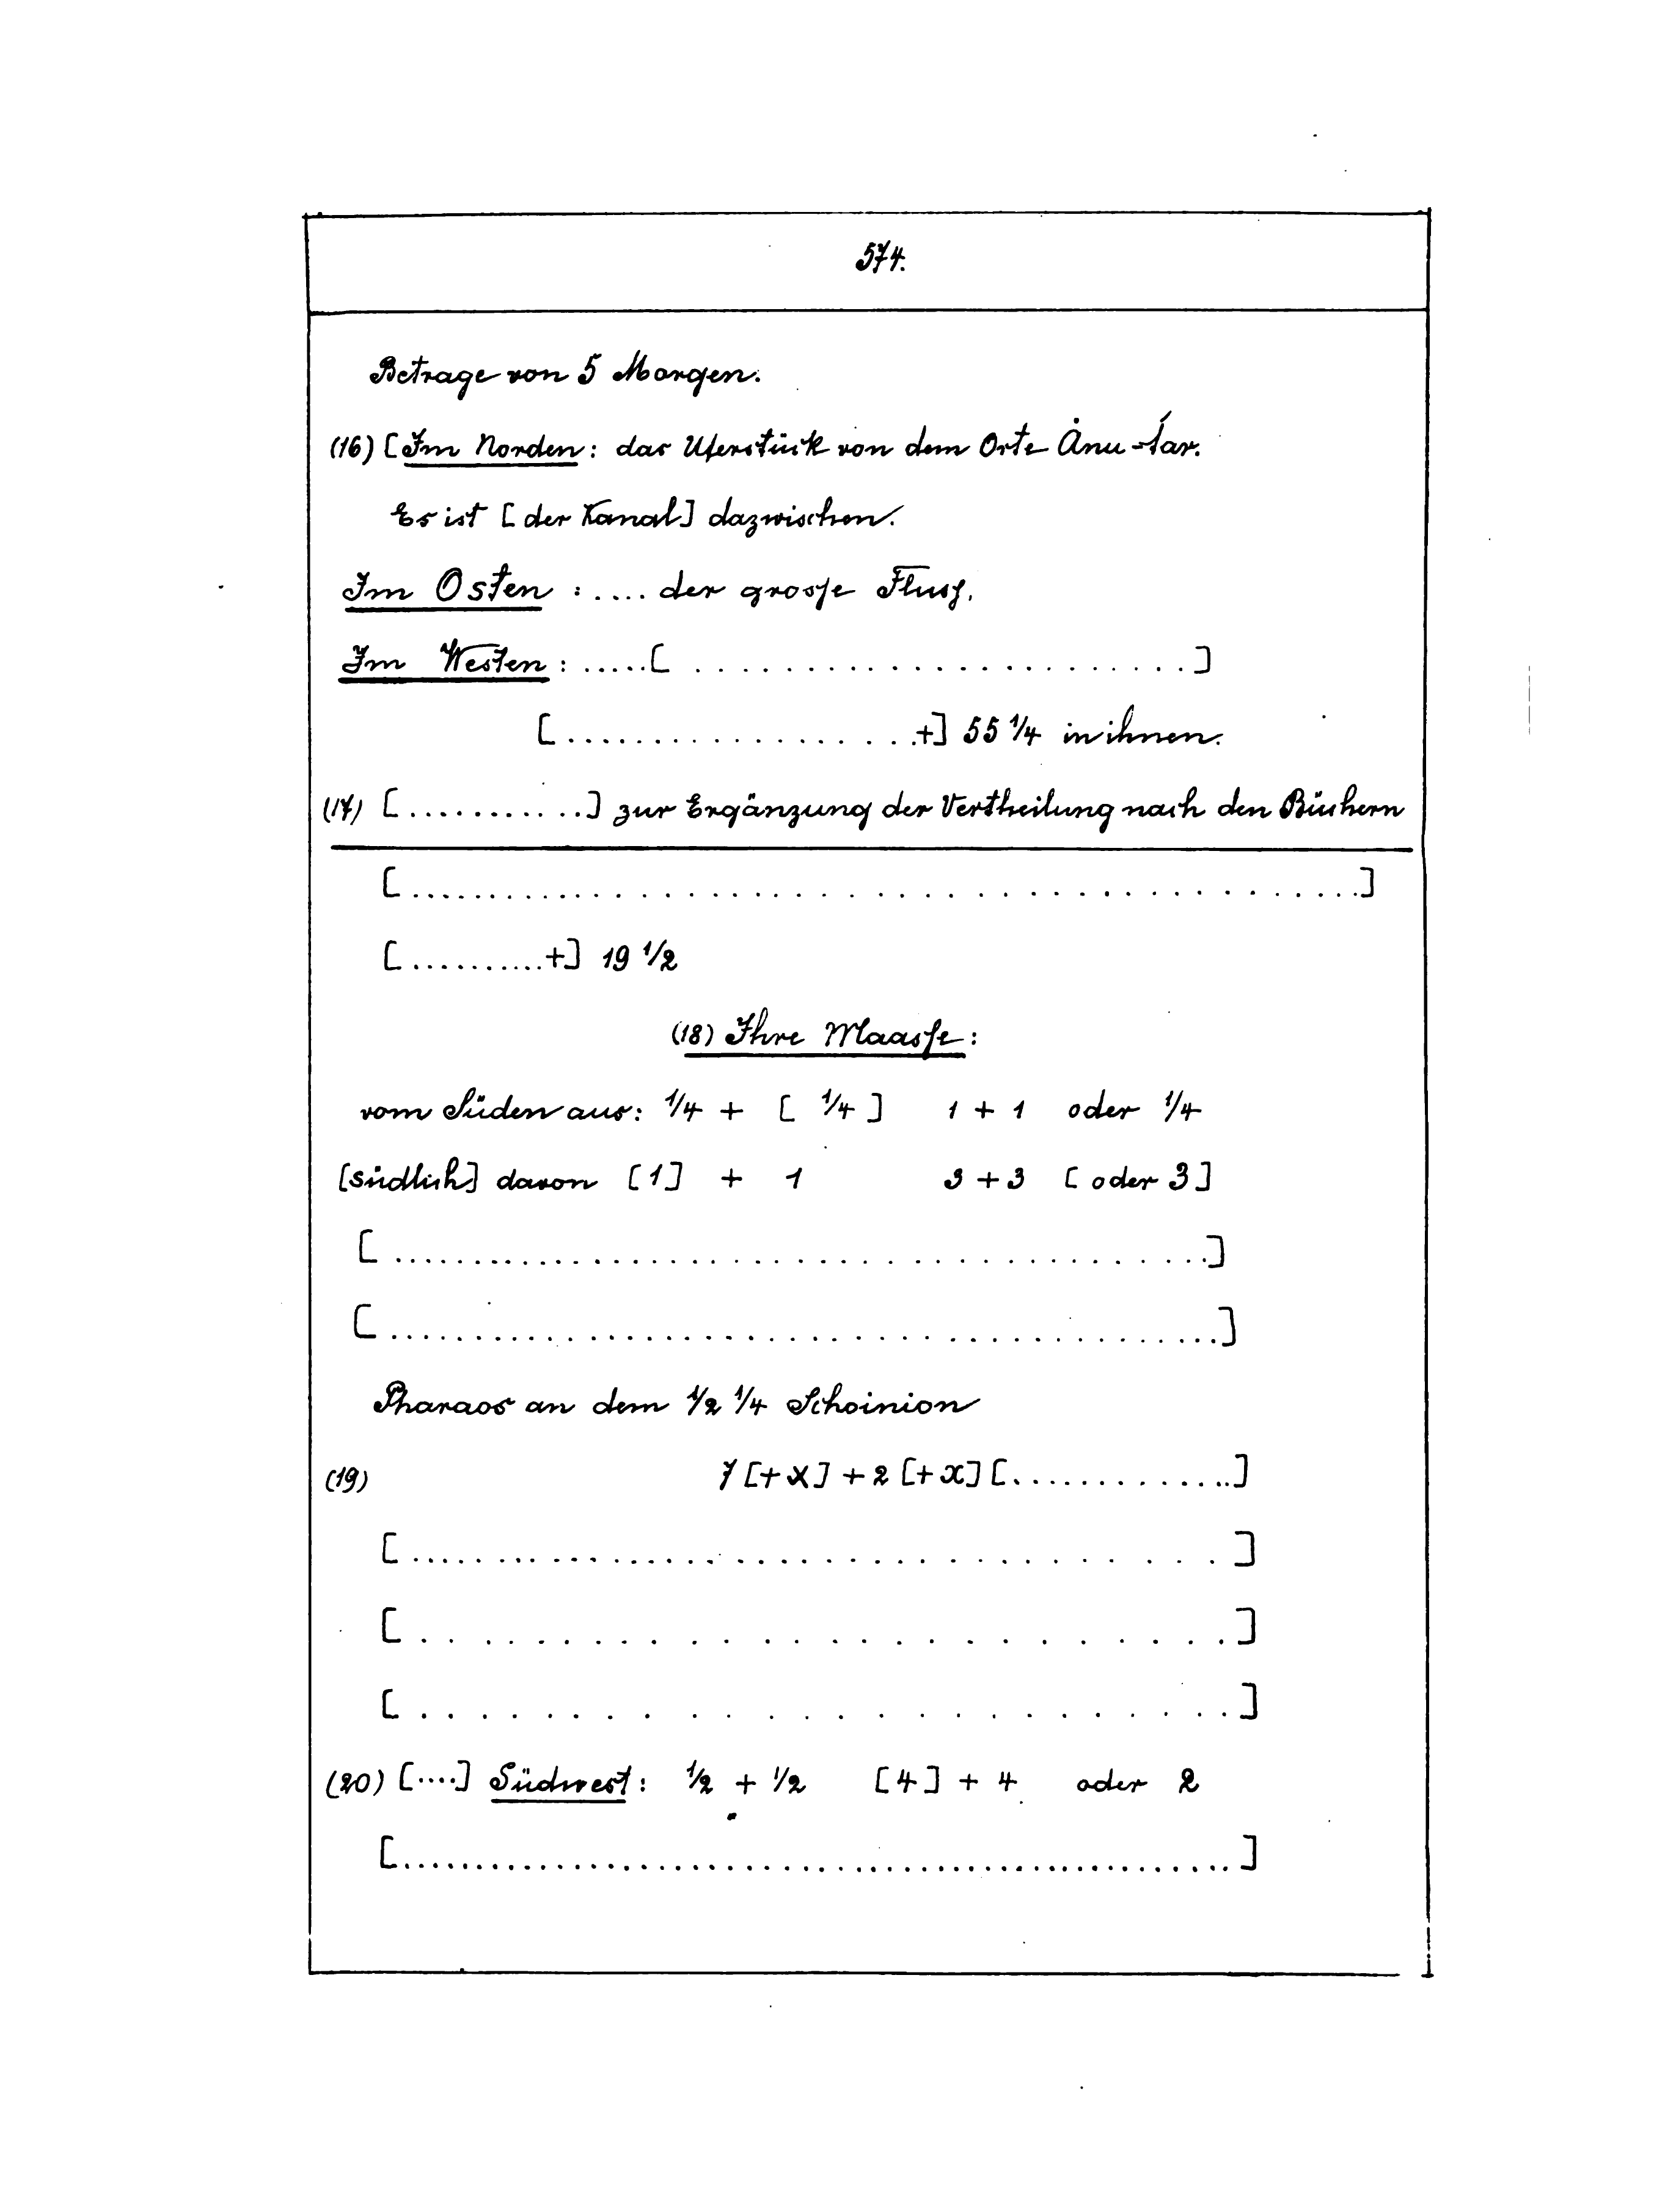 574.
Betrage von 5 Morgen.
(16) [Im Norden: das Uferstück von dem Orte Ȧnu-tar.
Es ist [der Kanal] dazwischen.
Im Osten: .... der grosse Fluss.
Im Westen: .....[ ....................... ]
[ ................... +] 55 1/4 in ihnen.
(17) [............] zur Ergänzung der Vertheilung nach den Büchern
[........................................]
[..........+] 19 1/2
(18) Ihre Maasse:
vom Süden aus: 1/4 + [ 1/4 ] 1 + 1 oder 1/4
[südlich] davon [1] + 1 3 + 3 [oder 3]
[ ........................................]
[ ........................................]
Pharaos an dem 1/2 1/4 Schoinion
(19) 7 [+ x] + 2 [+ x] [.............]
[ .................................... ]
[ .......................... ]
[ ..................... ]
(20) [....] Südwest: 1/2 + 1/2 [4] + 4 oder 2
[..................................................]